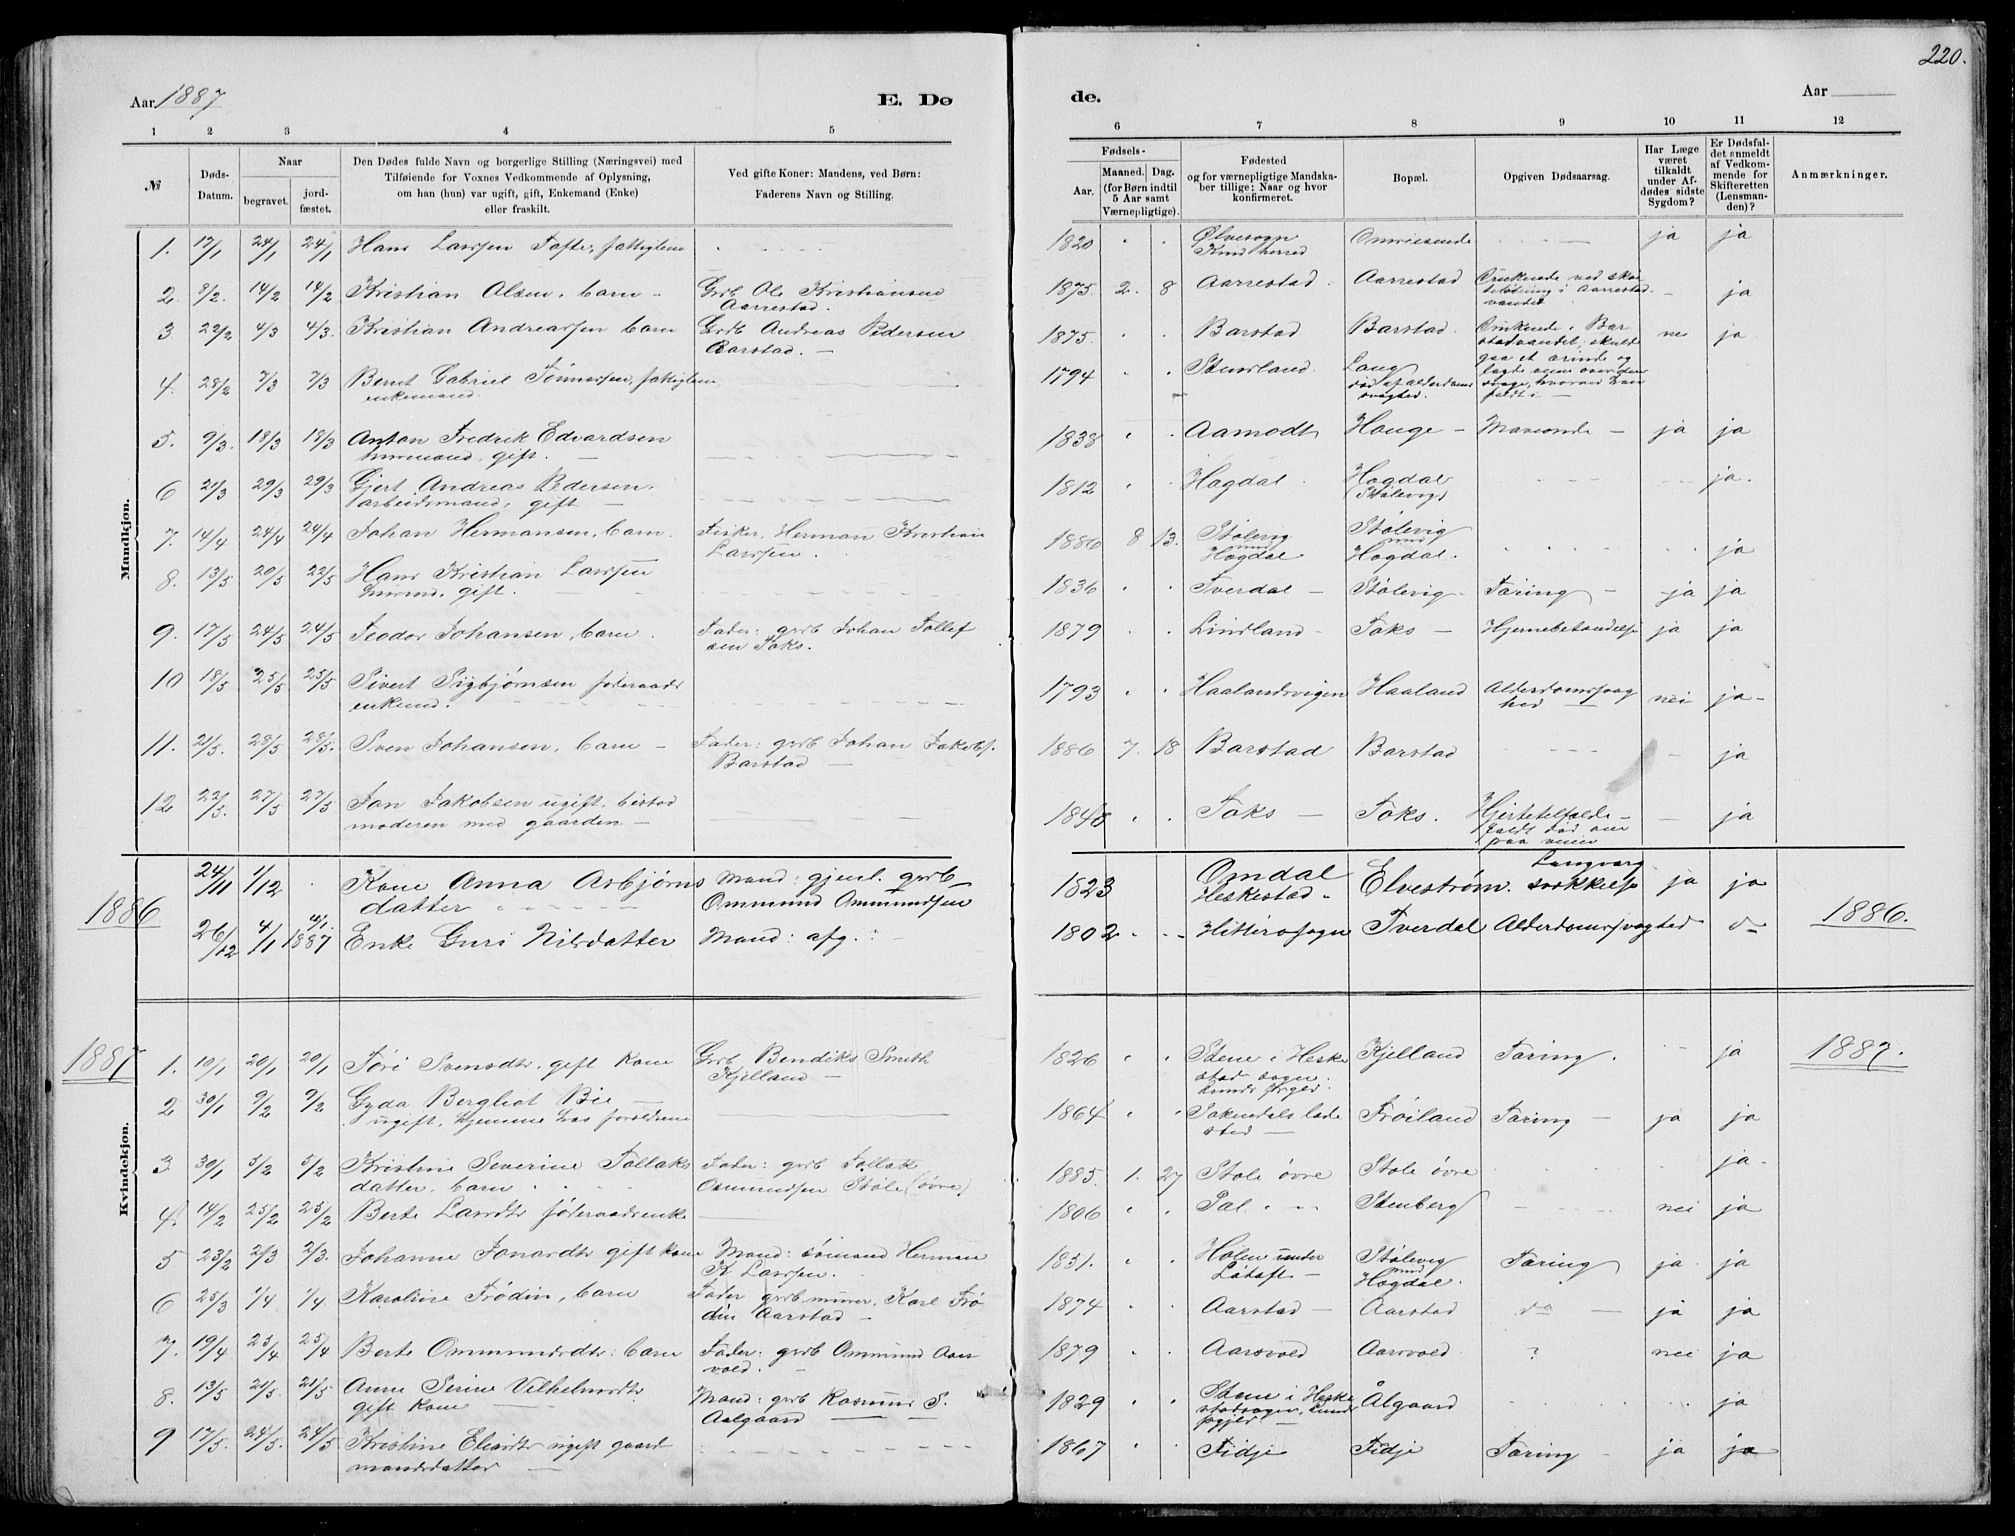 220.
Aar 1887
E. Dø
de.
Aar
1 2 3 4 5
6 7 8 9 10 11 12
№
Døds-Datum.
Naar
begravet.
jord-fæstet.
Den Dødes fulde Navn og borgerlige Stilling (Næringsvei) med
Tilføiende for Voxnes Vedkommende af Oplysning,
om han (hun) var ugift, gift, Enkemand (Enke)
eller fraskilt.
Ved gifte Koner: Mandens, ved Børn:
Faderens Navn og Stilling.
Fødsels-
Aar.
Maaned. Dag.
(for Børn indtil
5 Aar samt
Værnepligtige).
Fødested
og for værnepligtige Mandska-
ber tillige: Naar og hvor
konfirmeret.
Bopæl.
Opgiven Dødsaarsag.
Har Læge
været
tilkaldt
under Af-
dødes sidste
Sygdom?
Er Dødsfal-
det anmeldt
af Vedkom-
mende for
Skifteretten
(Lensman-
den)?
Anmærkninger.
Mandkjøn.
1. 17/1 24/1 24/1 Hans Larssen Tofte, fattiglem 1820 Ølvesogn Omreisende ja ja
Kind herred
2. 8/2. 14/2 14/2 Kristian Olsen, barn - Grdb Ole Kristiansen 1875. 2. 8 Aarrestad. Aarrestad Druknede ved skøi
Aarrestad. teløbning i Aarrestad - ja
vandet
3 22/2 4/3 4/3. Kristian Andreassen barn Grdb Andreas Pedersen 1875. Barstad Barstad. Druknede i Bar nei ja
Barstad. - stadvandet; skulde
gaa et ærinde og
4. 28/2 7/3 7/3 Bernt Gabriel Tønnessen, fattiglem 1794 Stensland. Laug
enkemand. død af alderdoms
svaghed.
5. 9/3. 18/3 18/3 Anton Fredrik Edvardsen 1838 Aamodt Hauge - Mavesonde - ja ja
gift. -
6 21/3 29/3 29/3 Gjert Andreas Pedersen. 1812 Hogdal. Hogdal ja.
arbeidsmand, gift - (Stølevig)
7. 14/4 24/4 24/4 Johan Hermansen, barn. Fisker, Herman Kristian 1886 8 13. Stølevig Stølevig
Larssen. Hogdal Hogdal. ja
8. 13/5 20/5 22/5 Hans Kristian Larssen 1836 Tverdal - Stølevig Tæring ja ja
gift.
9. 17/5 24/5 24/5 Teodor Johansen, barn. Fader: grdb Johan Tollef 1879 Lindland - Foks - Hjernebetændelse ja ja
sen Foks.
10 18/5 25/5 25/5 Sivert Sigbjørnsen føderaads 1793 Haalandsvigen Haaland Alderdomssvag nei ja-
enkemd. hed -
11. 21/5. 28/5 28/5. Sven Johansen, barn - Fader: grdb Johan Jakobs. 1886 7. 18 Barstad Barstad - ja
Barstad -
12 22/5. 27/5 27/5 Jan Jakobsen ugift, bistod 1848 Foks - Foks. Hjertetilfælde - - ja
moderen med gaarden - faldt død om
paa veien
1886
24/11 1/12 Kone Anna Asbjørns Mand: gjenl. grdb 1823 Omdal Elvestrøm Langvarig ja ja
datter Ommund Ommundsen Heskestad.
26/12 4/1 4/1. 1887 Enke Guri Nilsdatter Mand: afg. 1802 Hitterø sogn Tverdal Alderdomssvaghed do 1886.
1887
Kvindekjøn.
1. 10/1 20/1 20/1 Tøri Svensdtr. gift kone Grdb Bendiks Smith 1826 Stene i Heske Kjelland Tæring. - ja 1887.
Kjelland - stad sogn.
Lunds prgld.
2 30/1 9/2 9/2 Gyda Bergliot Bie - 1864 Soknedals lade Frøiland Tæring - ja ja
ugift, hjemme hos forældrene sted -
3 30/1 5/2 5/2 Kristine Severine Tollaks Fader: grdb Tollak 1885. 1. 27 Støle øvre Støle øvre ja.
datter, barn Ommundsen Støle (øvre)
4. 14/2 25/2 25/2 Berte Larsdtr føderaadsenke 1806 Pal. Stenberg nei ja
5 23/2 2/3 2/3. Johanne Jonasdtr gift kone Mand: sømand Herman 1851. Hølen under Stølevig Tæring ja ja
K Larssen. Løtoft - Hogdal.
6 25/3 1/4 1/4. Karoline Frødin, barn Fader grdb murer, Karl Frø 1874 Aarstad - Aarstad do - ja ja
din Aarstad -
7. 19/4 25/4 25/4 Berte Ommundsdtr: barn Fader: grdb Ommund Aars 1879 Aarsvold Aarsvold ? nei ja
vold.
8. 13/5 21/5. 21/5 Anne Serine Vilhelmsdtr Mand: grdb Rasmus S. 1829 Stene i Heske Ålgaard ja
gift kone Aalgaard - stadsogn, Lunds
prgjld -
9 17/5. 24/5. 24/5 Kristine Eliasdtr ugift gaard 1867 Fidje Fidje Tæring - ja ja
mandsdatter -